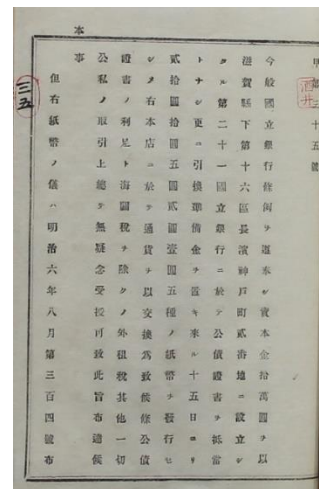 甲第三十五號
酒井
今般國立銀行條例ヲ遵奉シ資本金拾萬圓ヲ以
滋賀縣下第十六區長濱神戸町貳番地ニ設立シ
タル第二十一國立銀行ニ於テ公債證書ヲ抵當
トナシ更ニ引換準備金ヲ置キ來ル十五日ヨリ
貳拾圓拾圓五圓貳圓壹圓五種ノ紙幣ヲ發行セ
シメ右本店ニ於テ通貨ヲ以交換爲致候條公債
證書ノ利足ト海關税ヲ除クノ外租税其他一切
公私ノ取引上總テ無疑念受授可致此旨布達候
事
但右紙幣ノ儀ハ明治六年八月第三百四號布
本
三五